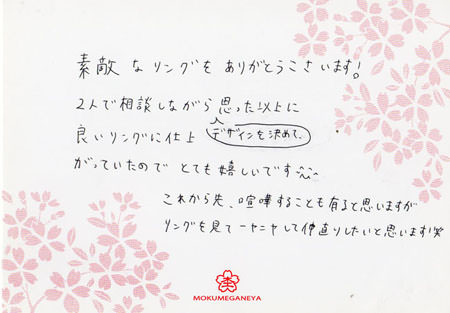 素敵なリングをありがとうございます!
2人で相談しながら思った以上に
デザインを決めて、
良いリングに仕上
がっていたので とても嬉しいです^^
これから先、喧嘩することも有ると思いますが
リングを見てニヤニヤして仲直りしたいと思います!笑
MOKUMEGANEYA